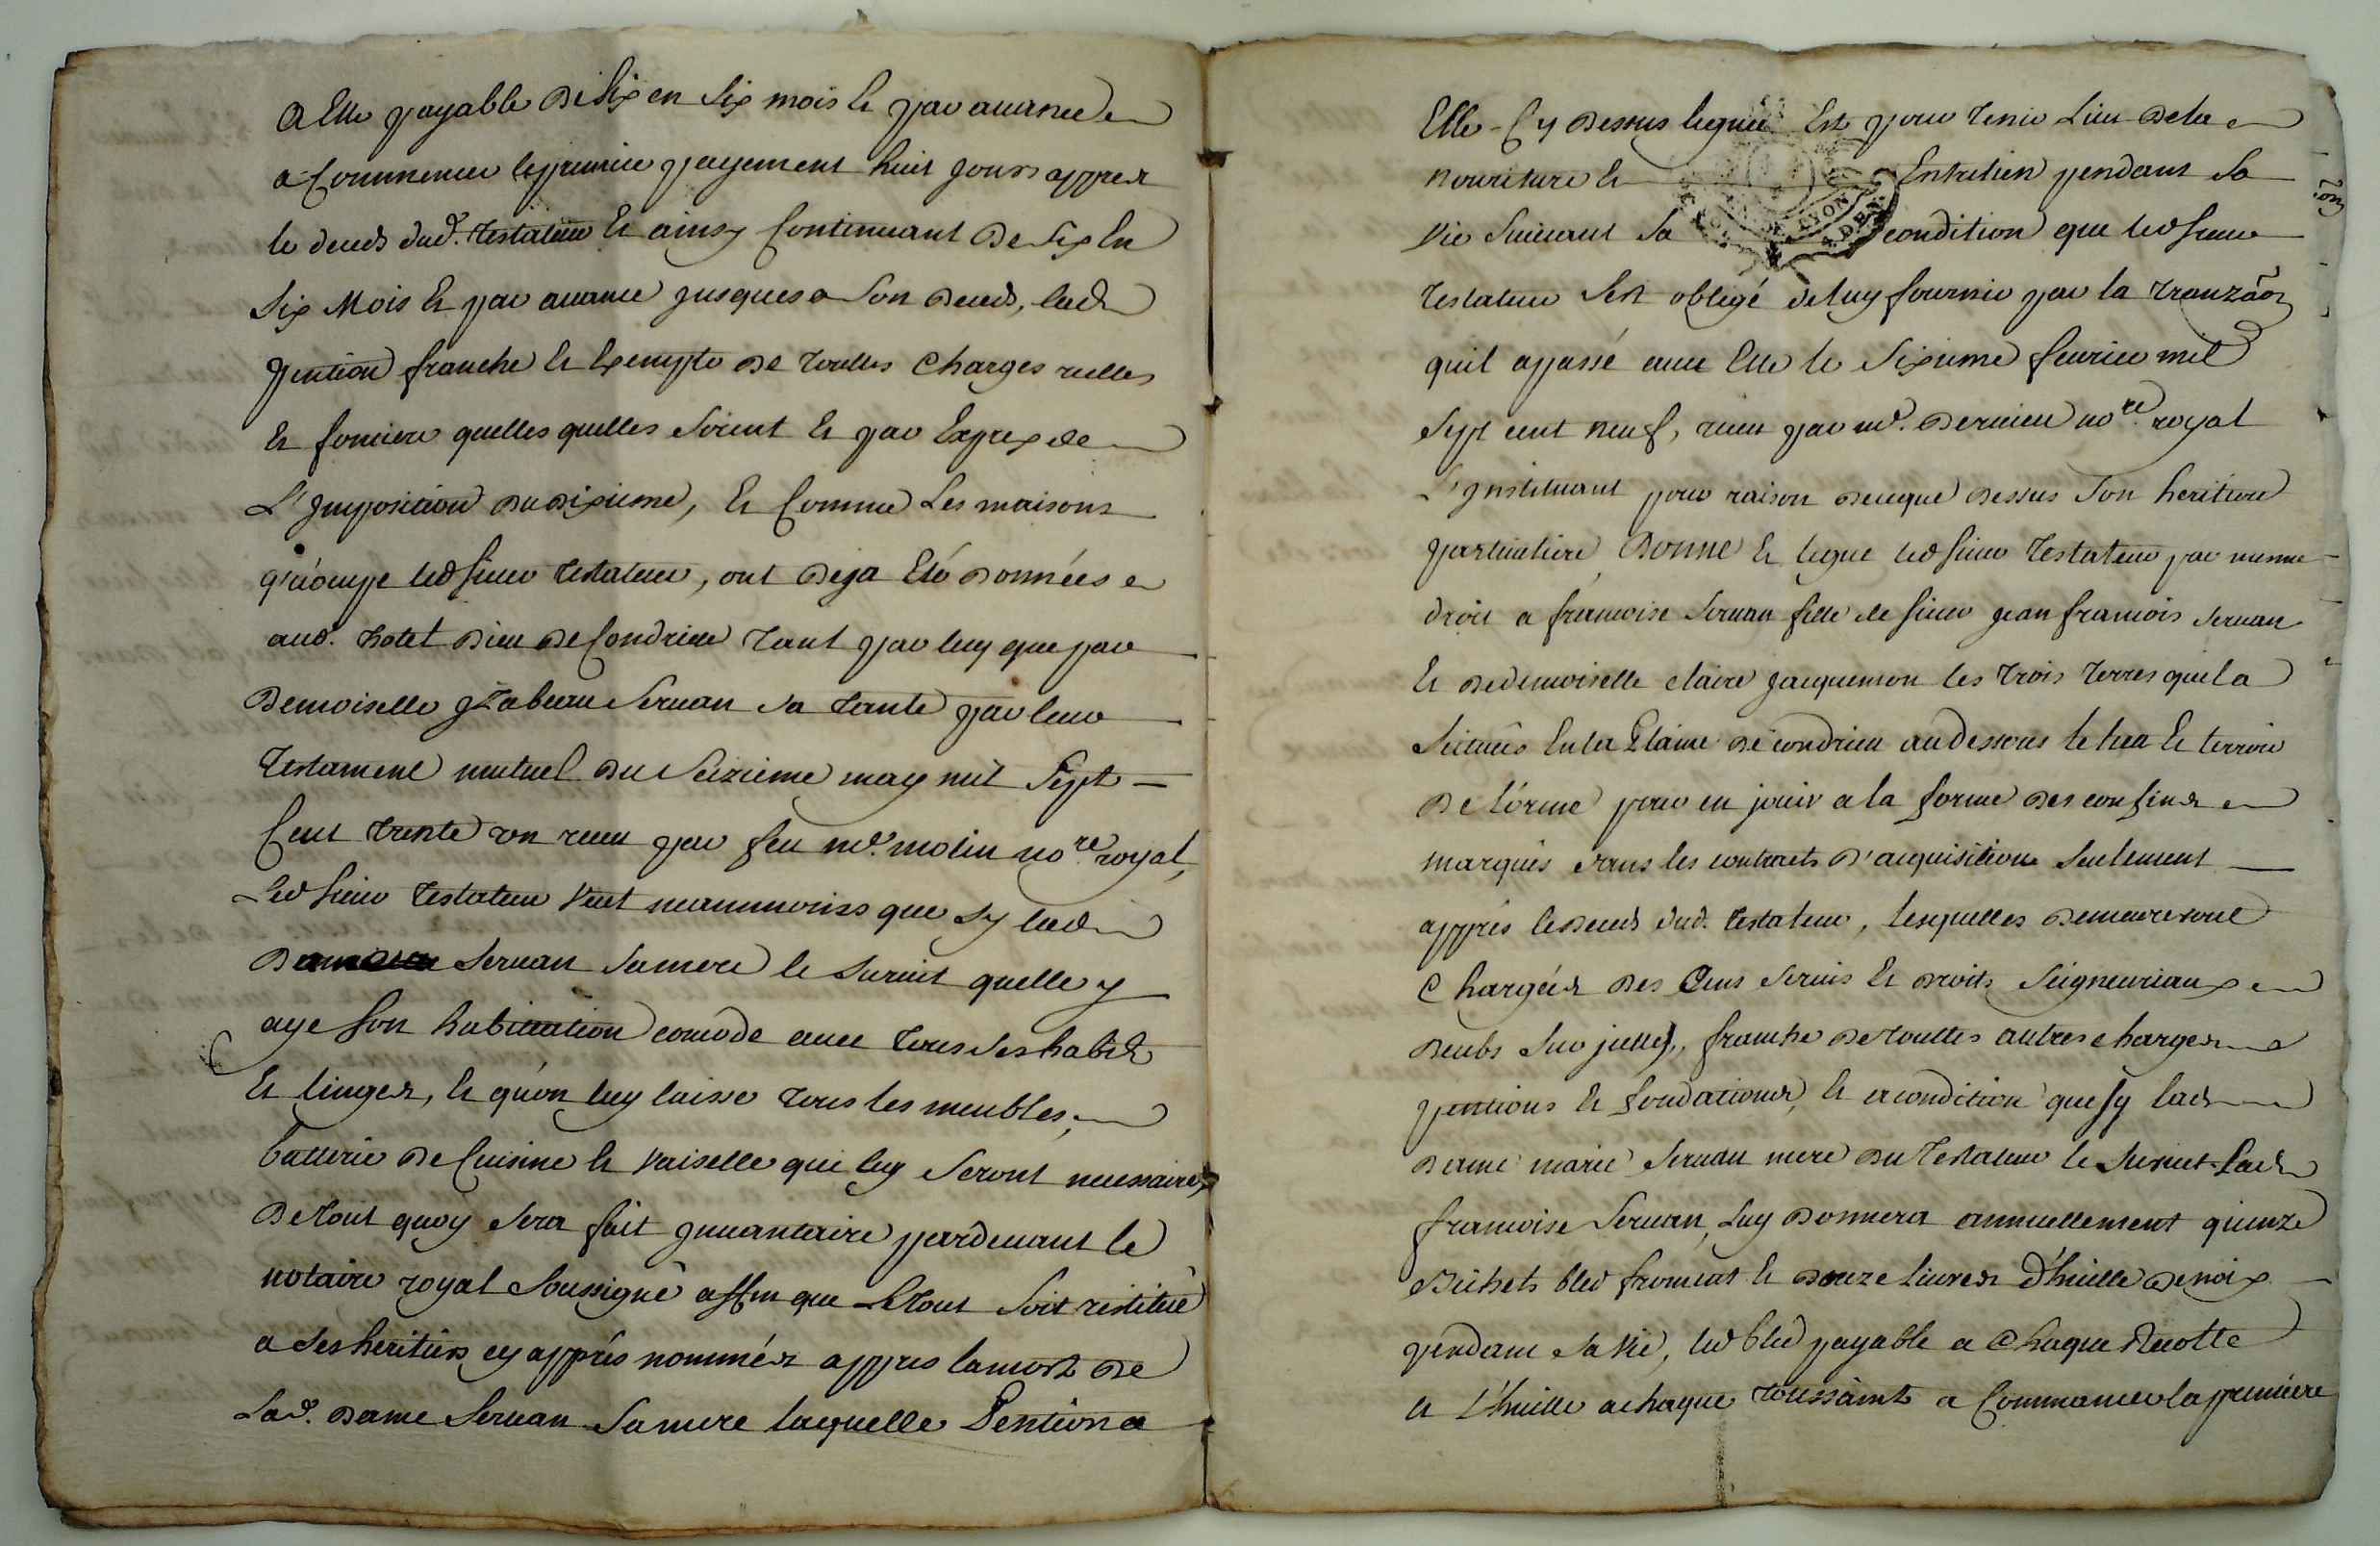 a Elle payable De Six en Six mois et par auance
a Commencer le premier payement huit jours appres
le deceds dud. Testateur Et ainsy Continuant De Six En
Six Mois Et par auance jusques a Son Deceds, lad.
pention franche et Exempte de touttes Charges reelles
Et fonciere quelles quelles Soient Et par Exprex de
L'jmposition Du Dixieme, Et Comme Les maisons
qu'ocuppe led Sieur testateur, ont Deja Eté Données
aud. hotel Dieu De Condrieu Tant par luy que par
Demoiselle jzabeau Seruan sa tante par leur
Testament mutuel Du Seizieme may mil Sept
Cent trente un receu par feu me. molin nore. royal,
Led Sieur Testateur Veut neanmoins que Sy lad.
Seruan Sa mere le Suruit quelle y
aye Son habitation comode auec tous Ses habits
Et linges, Et qu'on luy laisse tous les meubles,
batterie De Cuisine Et Vaiselle qui luy Seront necessaires,
De tout quoy Sera fait jnuantaire pardeuant le
notaire royal Soussigné affin que le tout Soit restitué
a Ses heritiers cy apprés nommés appres la mort De
Lad. Dame Seruan Sa mere laquelle Pention a
Elle Cy Dessus leguée Est pour tenir Lieu De la
nourriture Et Entretien pendant Sa
Vie Suiuant Sa condition que led Sieur
Testateur S'est obligé de luy fournir par la tranzãon
quil a passé auec Elle le Sixieme feurier mil
Sept cent neuf, receu par me. Dernieu nore. royal
L'jnstituant pour raison De ce que Dessus Son heritiere
particuliere, Donne Et legue led Sieur Testateur par mesme
droit a francoise Seruan fille de Sieur jean francois Seruan
Et De demoiselle claire jacquemon les trois terres quil a
Scituées En la Plaine De condrieu au dessous le lieu Et terroir
De l'orme pour en jouir a la forme des confins
marqués dans les contracts D'acquisitions Seulement
apprés le Deceds dud. testateur, lesquelles Demeureront
Chargées Des Cens Seruis Et Droits Seigneuriaux
Deubs Sur jcelles, franche De touttes autres charges
pentions Et fondations, Et a condition que Sy lad.
Dame marie Seruan mere Du Testateur le Suruit Lad.
francoise Seruan, Luy Donnera annuellement quinze
Bichets bled froment Et Douze liures D'huille De noix
pendant Sa Vie, led bled payable a Chaque Recolte
Et L'huille a chaque toussaint a Commancer la premiere
LYON